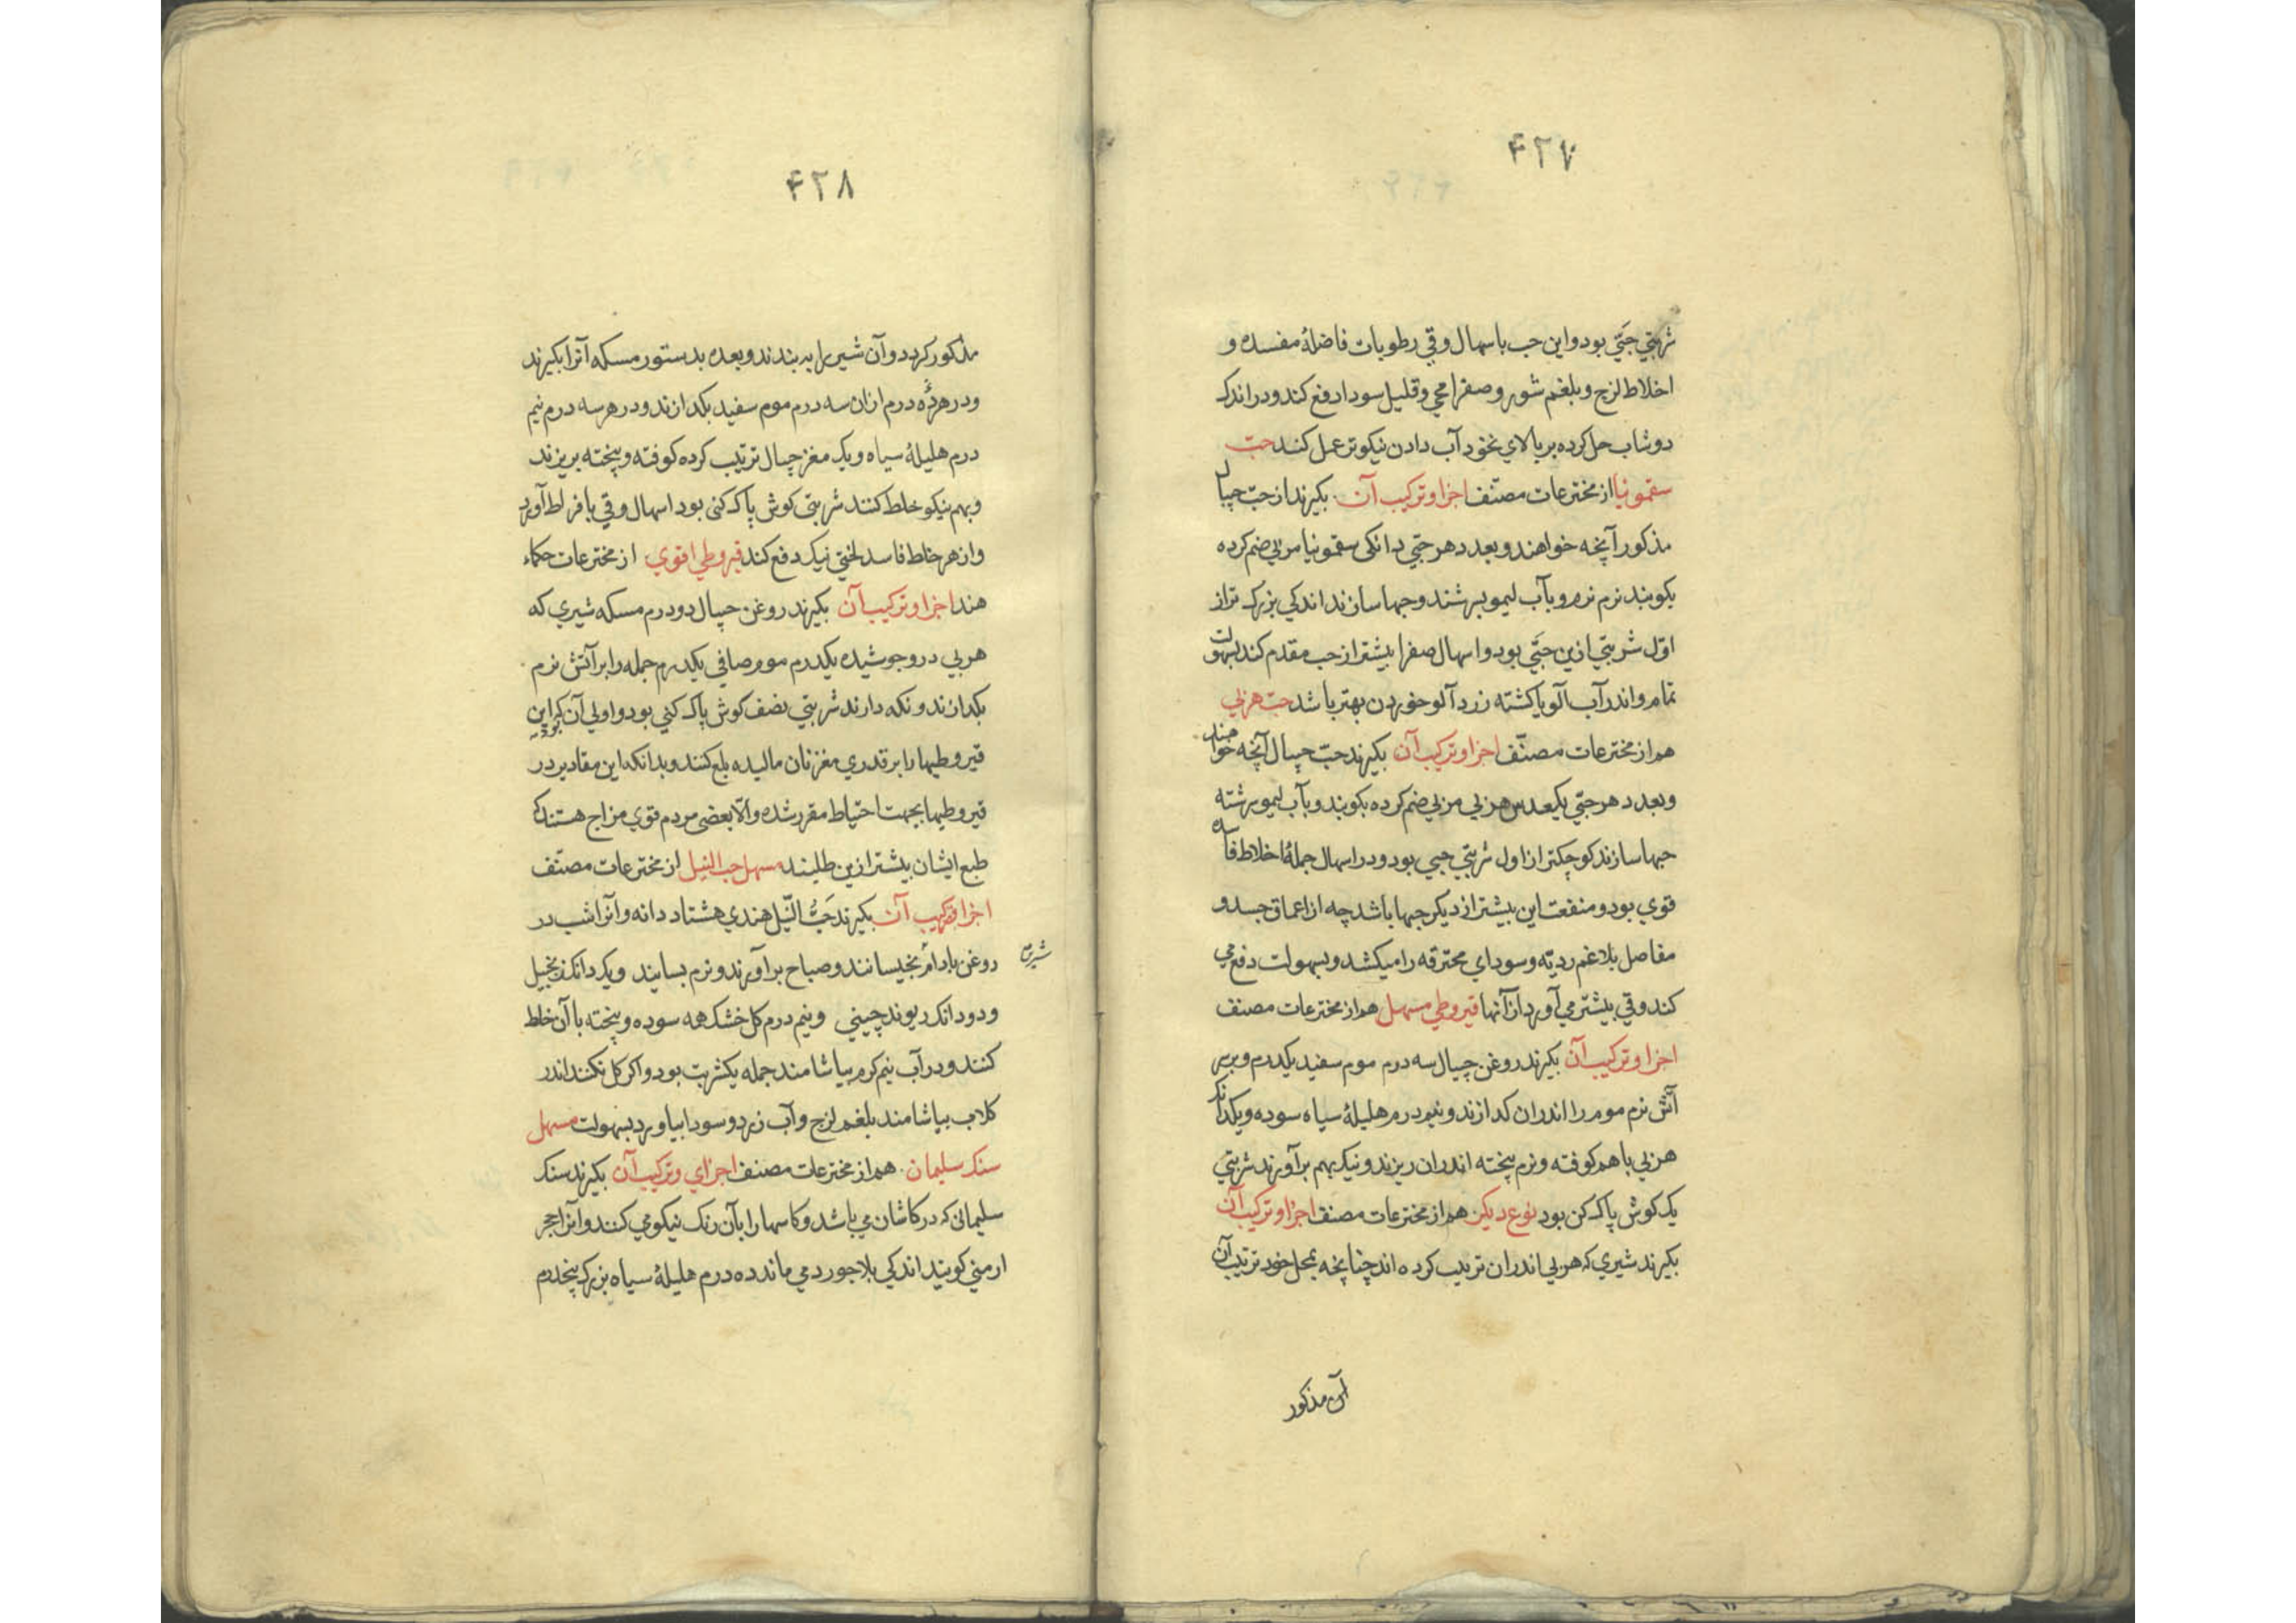 ۴۲۷
شربتي حبّي بود و اين حب باسهال و قي رطوبات فاضلهٔ مفسده و
اخلاط لزج و بلغم شور و صفرا محي و قليل سودا دفع کند و در اندک
دوشاب حل کرده بر بالاي نخود آب دادن نيکوتر عمل کند حبّ
سقمونيا از مخترعات مصنّف اجزا و ترکيب آن بکيرند از حبّ چپال
مذکور آنچه خواهند و بعدد هر حبّي دانکی سقمونيا مربي ضم کرده
بکوبند نرم نرم و بآب ليمو بسرشند و حبها سازند اندکي بزرک تر از
اوّل شربتي ازين حبّي بود و اسهال صفرا بيشتر از حب مقدم کند بسهولت
تمام و اندر آب آلو يا کشته زرد آلو خوردن بهتر باشد حبّ هربي
هم از مخترعات مصنّف اجزا و ترکيب آن بکيرند حبّ چپال آنچه خواهند
و بعدد هر حبّي يکعدس هربي مربي ضم کرده بکوبند و بآب ليمو سرشته
حبها سازند کوچکتر از اول شربتي حبي بود و در اسهال جملهٔ اخلاط فاسده
قوي بود و منفعت اين بيشتر از ديکر حبها باشد چه از اعماق جسد و
مفاصل بلاغم رديّه و سوداي محترقه را ميکشد و بسهولت دفع مي
کند و قي بيشتر مي آورد از آنها قيروطي مسهل هم از مخترعات مصنف
اجزا و ترکيب آن بکيرند روغن چپال سه درم موم سفيد يکدرم و بر سر
آتش نرم موم را اندران کدازند و نيم درم هليلهٔ سياه سوده و يکدانک
هربي با هم کوفته و نرم پخته اندران ريزند و نيک بهم برآورند شربتي
يک کوش پاک کن بود نوع ديکر هم از مخترعات مصنف اجزا و ترکيب آن
بکيرند شيري که هربي اندران ترتيب کرده اند چنانچه بمحل خود ترتيب آن
آن مذکور
۴۲۸
مذکور کردد و آن شير را به بندند و بعده بدستور مسکه آنرا بکيرند
و در هر ده درم ازان سه درم موم سفيد بکدازند و در هر سه درم نيم
درم هليلهٔ سياه و يک مغز چپال ترتيب کرده کوفته و پخته بريزند
و بهم نيکو خلط کنند شربتي کوش پاک کنی بود اسهال و قي بافراط آورد
و از هر خلط فاسد لختي نيک دفع کند قيروطي اقوي از مخترعات حکماء
هند اجزا و ترکيب آن بکيرند روغن چپال دو درم مسکه شيري که
هربي در و جوشيده يکدرم موم صافي يکدرم جمله را بر آتش نرم
بکدازند و نکه دارند شربتي نصف کوش پاک کني بود و اولي آن بود که اين
قيروطيها را بر قدري مغز نان ماليده بلع کنند و بدانکه اين مقادير در
قيروطيها بجهت احتياط مقرر شده و الّا بعضی مردم قوي مزاج هستند که
طبع ايشان بيشتر ازين طلبند مسهل حب النيل از مخترعات مصنّف
اجزا و ترکيب آن بکيرند حَبُّ النّيل هندي هشتاد دانه و آنرا شب در
روغن بادام بخيسانند و صباح برآورند و نرم بسايند و يک دانک زنجبيل
شيرين
و دو دانک ريوند چيني و نيم درم کل خشک همه سوده و پخته با آن خلط
کنند و در آب نيم کرم بياشامند جمله يکشربت بود و اکر کل نکنند اندر
کلاب بياشامند بلغم لزج و آب زرد و سودا بياورد بسهولت مسهل
سنک سليمان هم از مخترعات مصنف اجزاي و ترکيب آن بکيرند سنک
سليمانی که در کاشان مي باشد و کاسها را بآن رنک نيکو مي کنند و آنرا حجر
ارمني کويند اندکي بلاجورد مي ماند ده درم هليلهٔ سياه بزرک پنجدرم